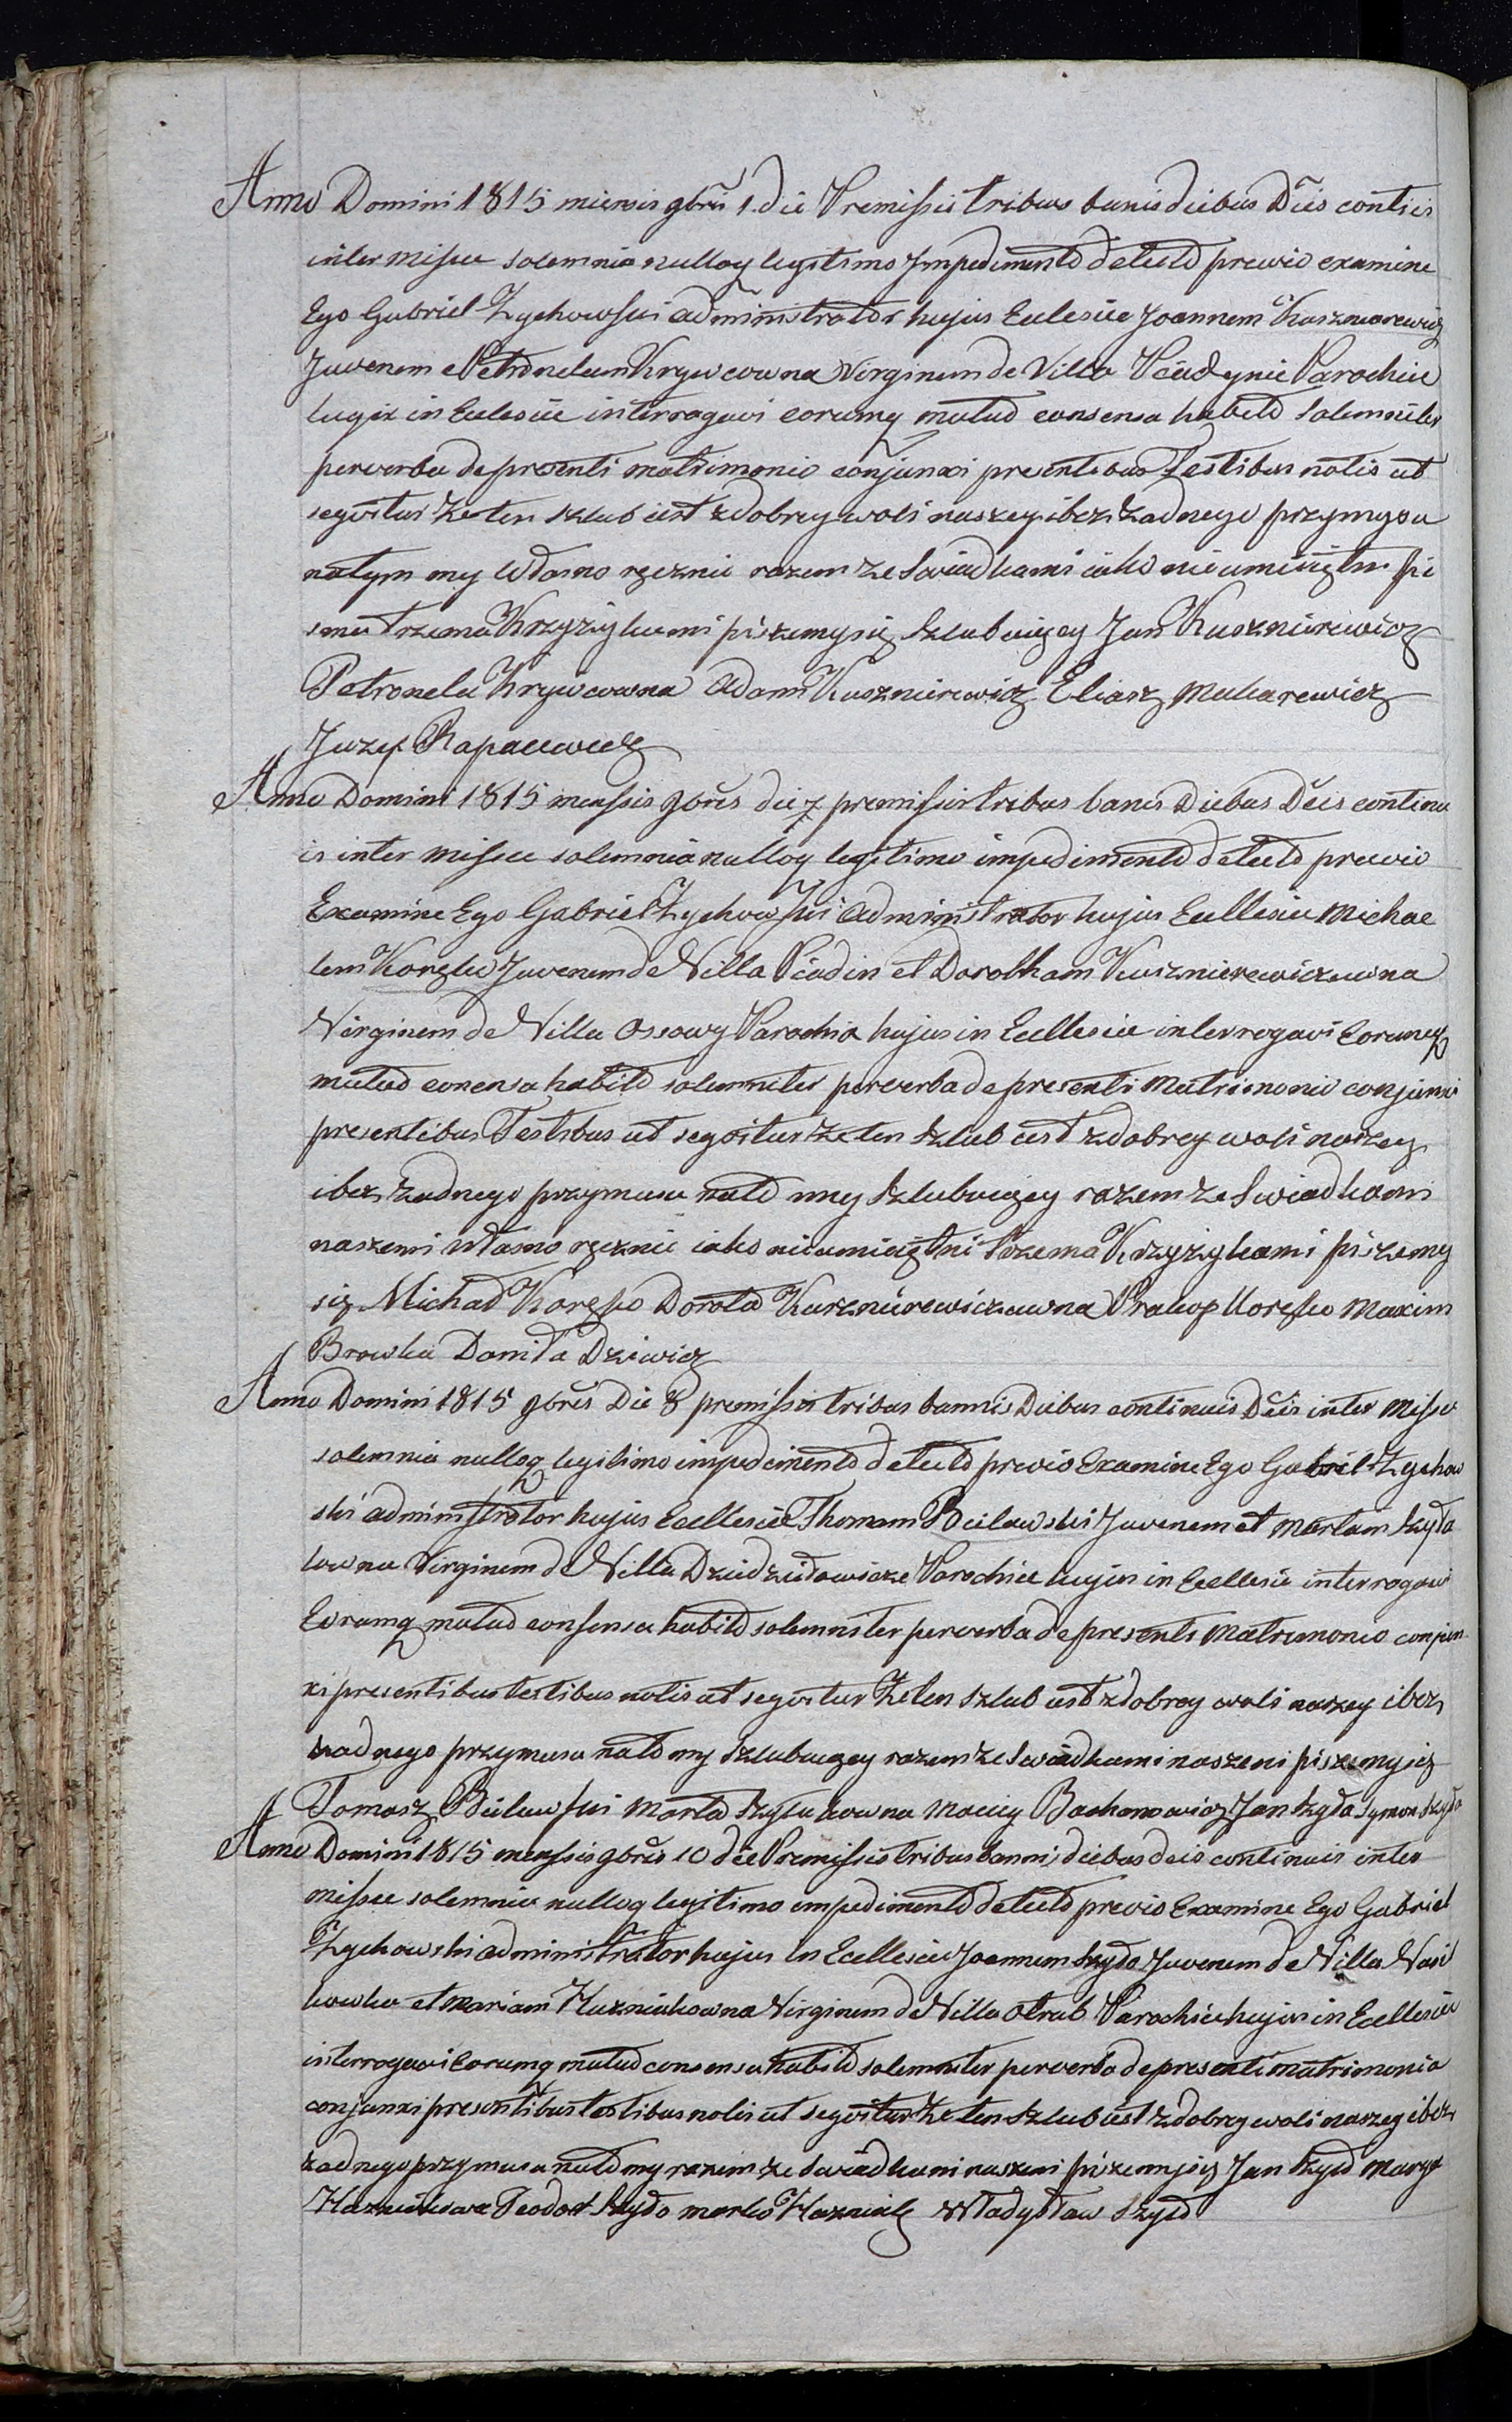 Anno Domini 1815 miensis 9bris 1. die Premissis tribus banis diebus Dnis contis
inter missae solemnia nulloq legitimo Impedimento detecto previo examine
Ego Gabriel Zychowski administrator hujus Eclesiae Joannem Kuszniarewicz
Juvenem et Petronelam Krywcowna Virginem de Villa Piadynie Parochiae
hujus in Eclesiae interrogavi eorumq mutuo consensu habito solemniter
per verba de presenti matrimonio conjunxi presentibus Testibus notis ut
segvitur że ten szlub iest z dobrey woli naszey i bez żadnego przymysu
na tym my własno ręcznie razem ze swiadkami iako nieumieiętni pi
sma trzema Krzyżykami piszemy się szlubuięcy Jan Kusznierewicz
Petronela Krywcowna Adam Kusznierewicz Eliasz Makarewicz
Juzef Rapacewicz
Anno Domini 1815 menssis 9bris die 7 premissis tribus banis Diebus Dnis continu
is inter missae solemnia nulloq legitimo impedimento detecto previo
Examine Ego Gabriel Zychowski administrator hujus Ecllesiae Michae
lem Koręko Juvenem de Villa Piadin et Dorotham Kusznierewiczowna
Virginem de Villa Ossowy Parochia hujus in Ecllesiae interrogavi Eorumq
mutuo consensu habito solemniter per verba de presenti Matrimonio conjunxi
presentibus Testibus ut segvitur że ten szlub iest z dobrey woli naszey
i bez żadnego przymusu na to my szlubuięcy razem ze swiadkami
naszemi własno ręcznie iako nieumieiętni trzema Krzyżykami piszemy
się Michał Koręko Dorota Kusznierewiczowna Prakop Koręko Maxim
Browka Daniła Dziewicz
Anno Domini 1815 9bris Die 8 premissis tribus bannis Diebus continuis Dnis inter Misse
solemnia nulloq legitimo impedimento detecto previo Examine Ego Gabriel Zychow
ski administrator hujus Ecllesiae Thomam Bielawski Juvenem et Martam Szyła
kowna Virginem de Villa Dziedzidowicze Parochiae hujus in Ecllesie interrogavi
Eorumq mutuo consensu habito solemniter per verba de presenti Matrimonio conjun
xi presentibus testibus notis ut segvitur że ten szlub iest z dobrey woli naszey i bez
żadnego przymusu na to my szlubuięcy razem ze swiadkami naszemi piszemy się
Tomasz Bielawski Marta Szyłakowna Maciey Bachanowicz Jan Szyda Symon Szyda
Anno Domini 1815 menssis 9bris 10 die Premissis tribus bannis diebus dnis continuis inter
missae solemnia nulloq legitimo empedimento detecto previo Examine Ego Gabriel
Zychowski administrator hujus in Ecllesiae Joannem Szydo Juvenem de Villa Wasil
kowka et Mariam Huzniakowna Virginem de Villa Otrub Parochiae hujus in Ecllesiae
interrogavi Eorumq mutuo consensu habito solemniter per verba de presenti matrimonio
conjunxi presentibus testibus notis ut segvitur że ten szlub iest z dobrey woli naszey i bez
żadnego przymusu na to my razem ze swiadkami naszemi piszemy się Jan Szydo Marya
Huzniakowa Teodor Szydo marko Huzniak Władysław Szydo